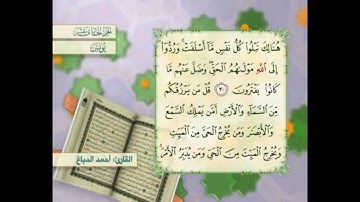 الجزء الحادي عشر
يونس
هُنَالِكَ تَبْلُوا۟ كُلُّ نَفْسٍ مَّآ أَسْلَفَتْ ۚ وَرُدُّوٓا۟
إِلَى ٱللَّهِ مَوْلَىٰهُمُ ٱلْحَقِّ ۖ وَضَلَّ عَنْهُم مَّا
كَانُوا۟ يَفْتَرُونَ ٣٠ قُلْ مَن يَرْزُقُكُم
مِّنَ ٱلسَّمَآءِ وَٱلْأَرْضِ أَمَّن يَمْلِكُ ٱلسَّمْعَ
وَٱلْأَبْصَٰرَ وَمَن يُخْرِجُ ٱلْحَىَّ مِنَ ٱلْمَيِّتِ
وَيُخْرِجُ ٱلْمَيِّتَ مِنَ ٱلْحَىِّ وَمَن يُدَبِّرُ ٱلْأَمْرَ ۚ
القارئ: أحمد الدباغ